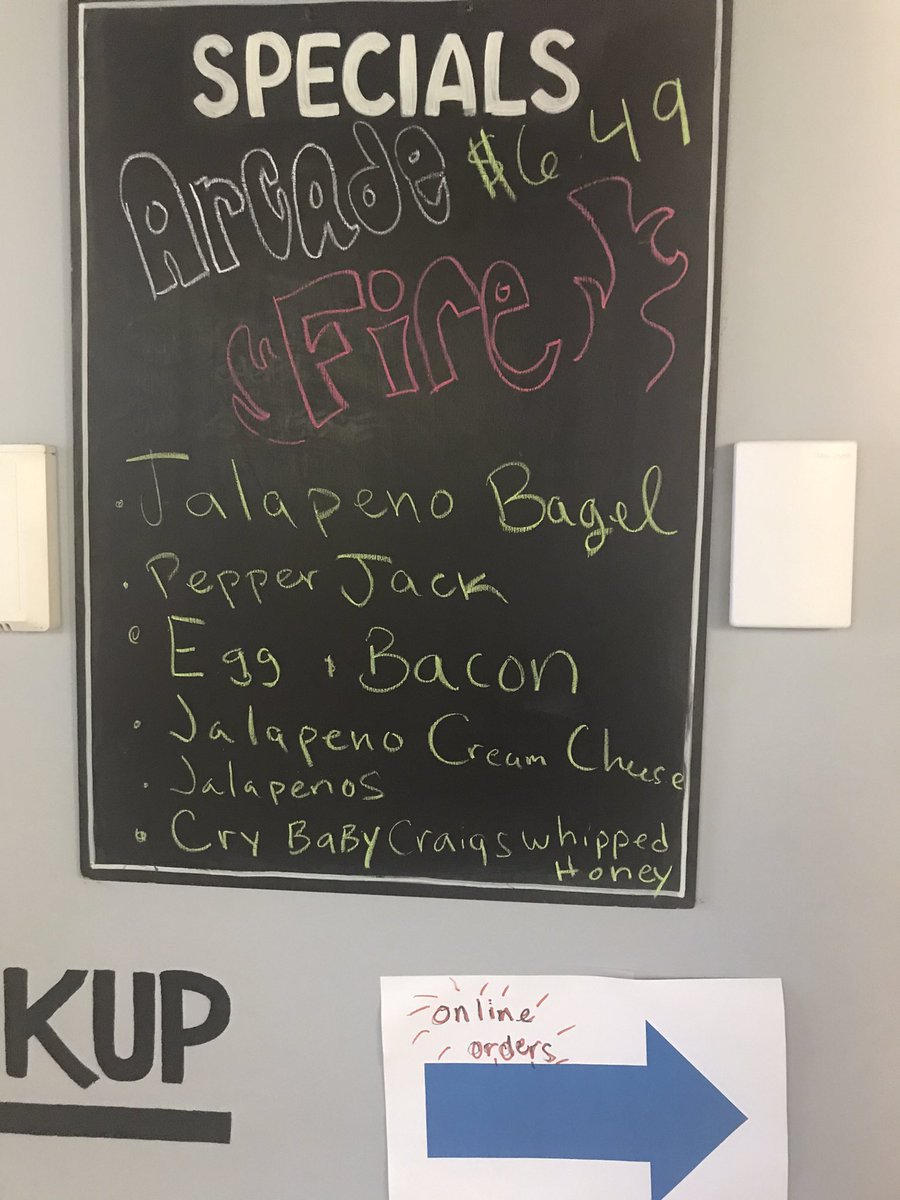 SPECIALS
Arcade $6.49
Fire
• Jalapeno Bagel
• Pepper Jack
• Egg + Bacon
• Jalapeno Cream Cheese
• Jalapenos
• Cry BaBy Craigs whipped
Honey
KUP
online
orders